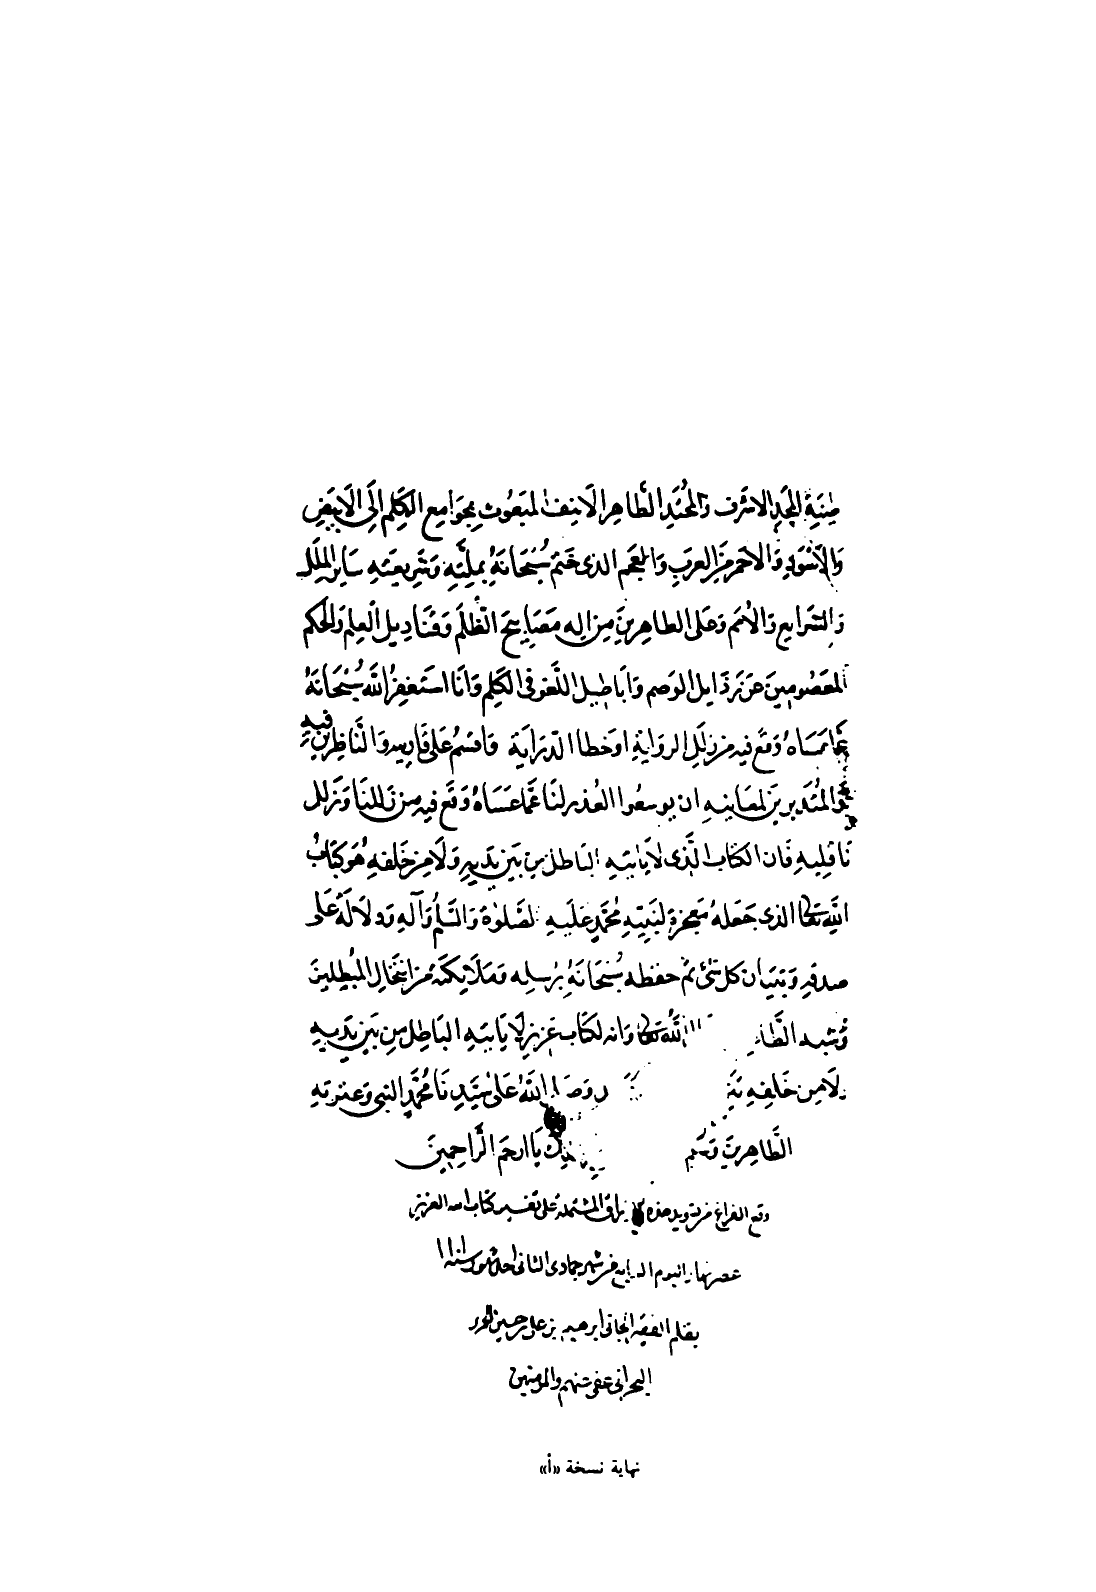 طينة المجد الاشرف والمحتد الطاهر الانف المبعوث بجوامع الكلم الى الابيض
والاسود والاحمر من العرب والعجم الذى ختم سبحانه بملته وشريعته ساير الملل
والشرايع والامم وعلى الطاهرين من اله مصابيح الظلم وقناديل العلم والحكم
المعصومين عن رذايل الوصم واباطيل اللغو فى الكلم وانا استغفر الله سبحانه
عما عساه وقع فيه من زلل الرواية او خطا الدراية واقسم على قاريه والناظرين فيه
والمتدبرين لمعانيه ان يوسعوا العذر لنا عما عساه وقع فيه من زللنا وزلل
ناقليه فان الكتاب الذى لا ياتيه الباطل من بين يديه ولا من خلفه هو كتاب
الله تعالى الذى جعله معجزة لنبيه محمد عليه الصلوة والسلم وآله ودلالة على
صدقه وتبيان كل شئ ثم حفظه سبحانه برسله وملائكته من انتحال المبطلين
الله تعالى وانه لكتاب عزيز لا ياتيه الباطل من بين يديه
ولا من خلفه الله على سيدنا محمد النبى وعترته
الطاهرين يا ارحم الراحمين
وقع الفراغ من تسويد هذه الاوراق المشتملة على تفسير كتاب الله العزيز
عصر نهار اليوم الرابع من شهر جمادى الثانى
بقلم الفقير الجانى ابرهيم بن على بن حسين
البحرانى عفى عنهم والمومنين
نهاية نسخة «أ»